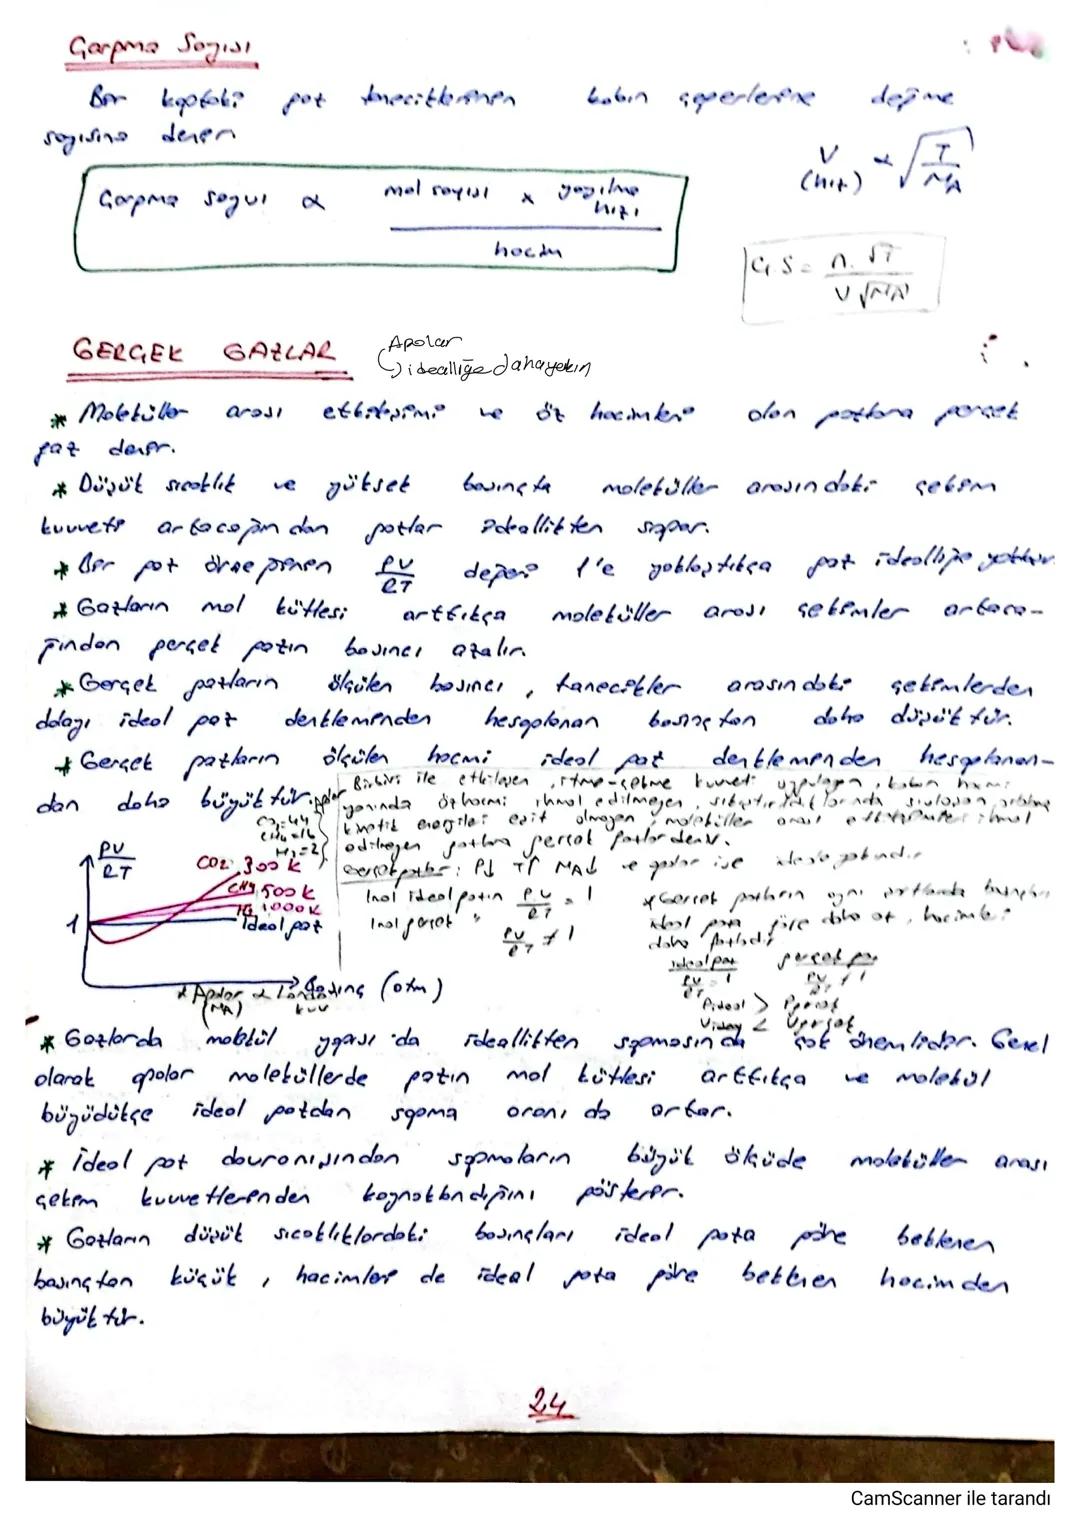 Çarpma Sayısı
Bir kaptaki gaz taneciklerinin kabın çeperlerine değme
sayısına denir
V (hız) α √(T/MA)
Çarpma sayısı α mol sayısı x yayılma hızı / hacim
Ç.S = n.√T / V√MA
GERÇEK GAZLAR
Apolar
idealliğe daha yakın
* Moleküller arası etkileşimi ve öz hacimleri olan gazlara gerçek
gaz denir.
* Düşük sıcaklık ve yüksek basınçta moleküller arasındaki çekim
kuvveti artacağından gazlar ideallikten sapar.
* Bir gaz örneğinin PV/RT değeri 1'e yaklaştıkça gaz idealliğe yaklaşır.
* Gazların mol kütlesi arttıkça moleküller arası çekimler artaca-
ğından gerçek gazın basıncı azalır.
* Gerçek gazların ölçülen basıncı, tanecikler arasındaki çekimlerden
dolayı ideal gaz denkleminden hesaplanan basınçtan daha düşüktür.
* Gerçek gazların ölçülen hacmi ideal gaz denkleminden hesaplanan-
dan daha büyüktür.
Birbiri ile etkileşen, itme-çekme kuvveti uygulayan, kabın hacmi
yanında özhacmi ihmal edilmeyen, sıkıştırıldıklarında
kinetik enerjileri eşit olmayan, moleküller arası etkileşimleri ihmal
edilmeyen gazlara gerçek gazlar denir.
CO2=44
CH4=16
H2=2
PV/RT
1
CO2 300 K
CH4 500 K
H2 1000 K
İdeal gaz
Basınç (atm)
Gerçek gazlar: P↓ T↑ MA↓ ve
1mol ideal gazın PV/RT = 1
1mol gerçek " PV/RT ≠ 1
* Gerçek gazların aynı şartlarda basınçları
ideal gaza göre daha az, hacimleri
daha fazladır
ideal gaz gerçek gaz
PV/RT = 1 PV/RT ≠ 1
Pideal > Pgerçek
Videal < Vgerçek
α Apolar α London
(MA) kuv
* Gazlarda molekül yapısı da ideallikten sapmasında çok önemlidir. Genel
olarak apolar moleküllerde gazın mol kütlesi arttıkça ve molekül
büyüdükçe ideal gazdan sapma oranı da artar.
* İdeal gaz davranışından sapmaların büyük ölçüde moleküller arası
çekim kuvvetlerinden kaynaklandığını gösterir.
* Gazların düşük sıcaklıklardaki basınçları ideal gaza göre beklenen
basınçtan küçük, hacimler de ideal gaza göre beklenen hacimden
büyüktür.
24
CamScanner ile tarandı